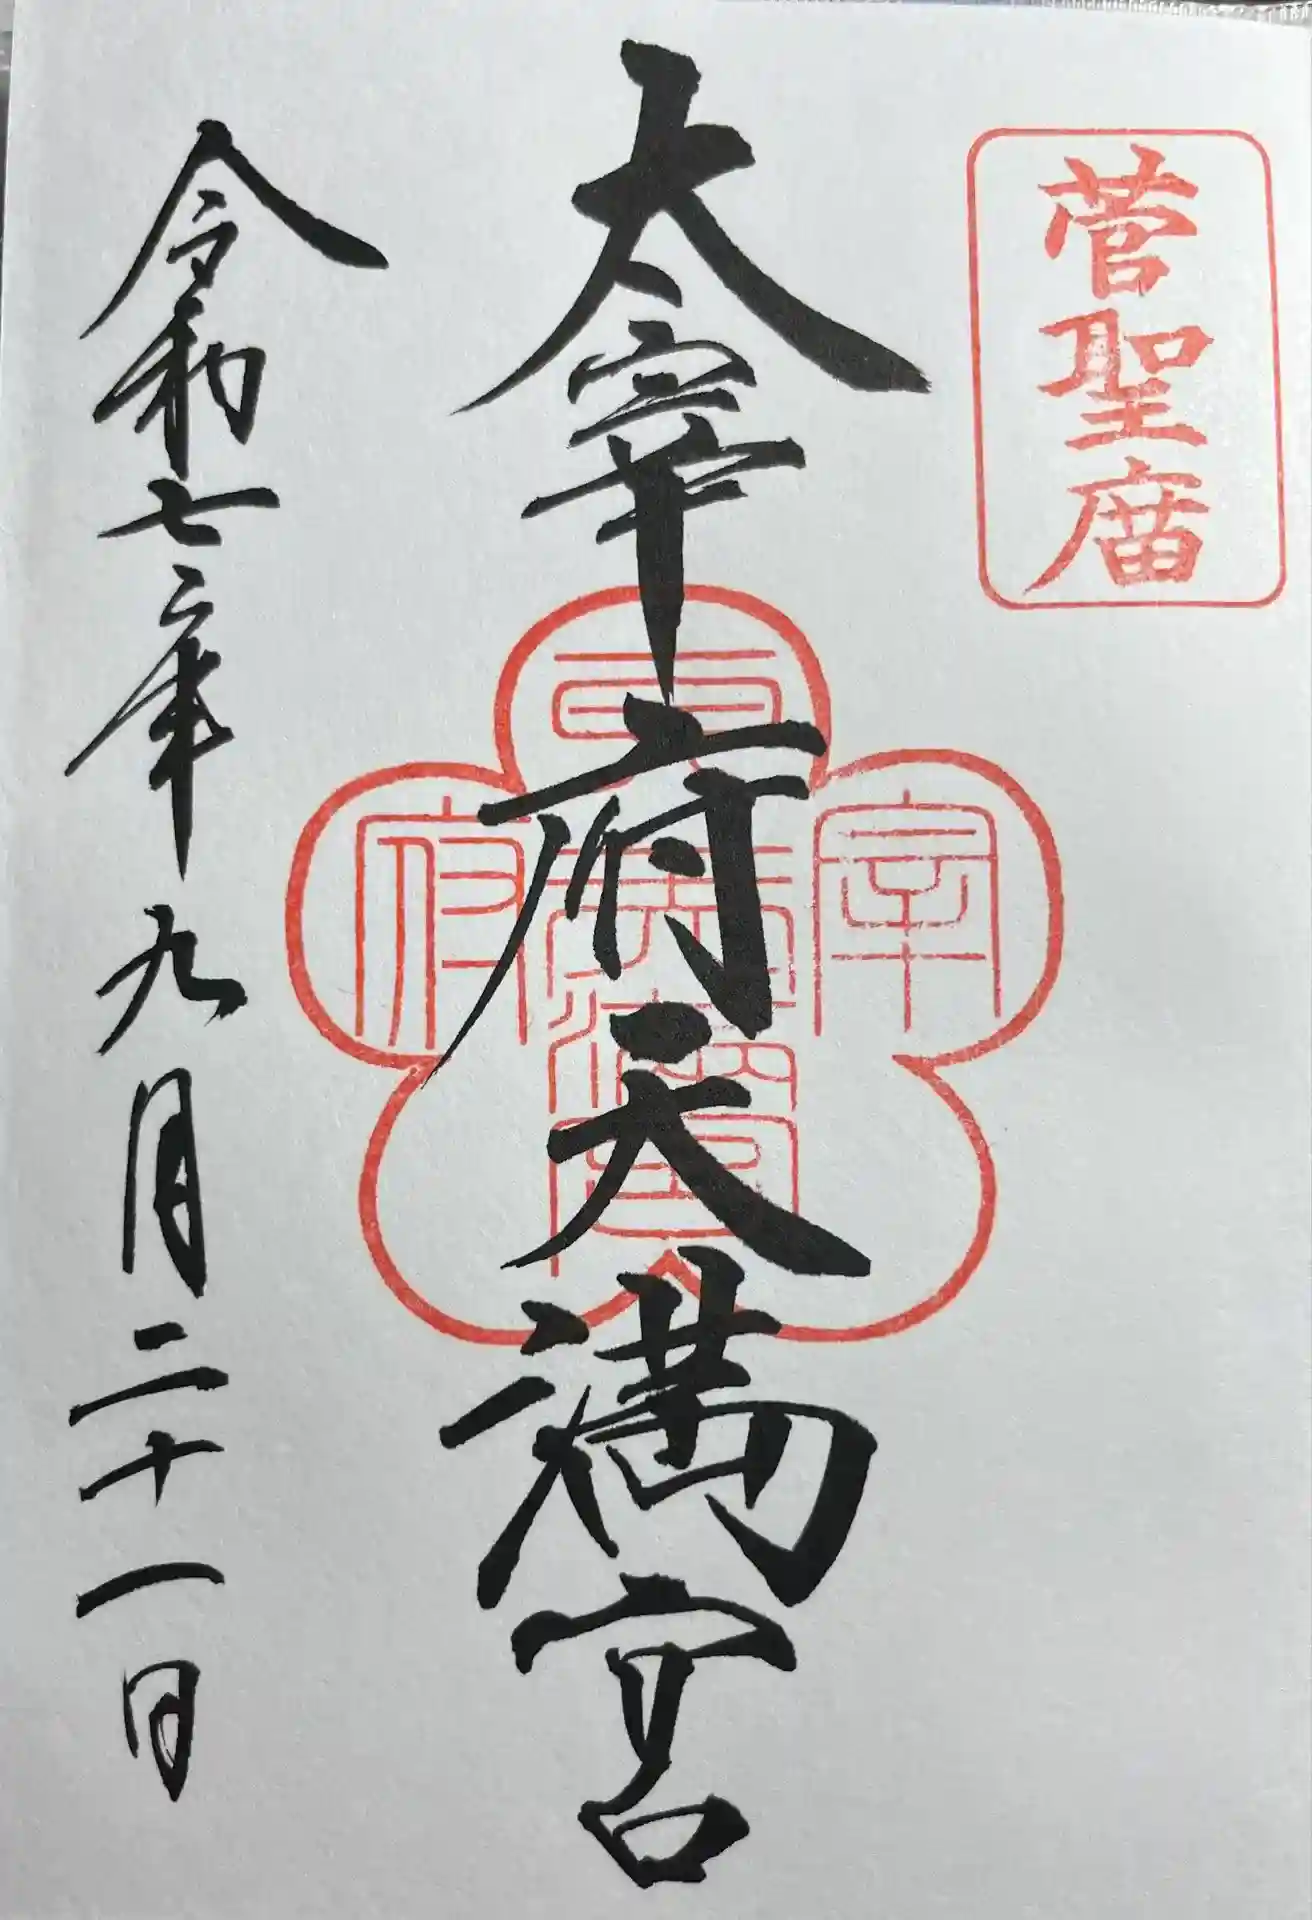 菅聖庿
太宰府天満宮
太宰府天満宮
令和七年九月二十一日